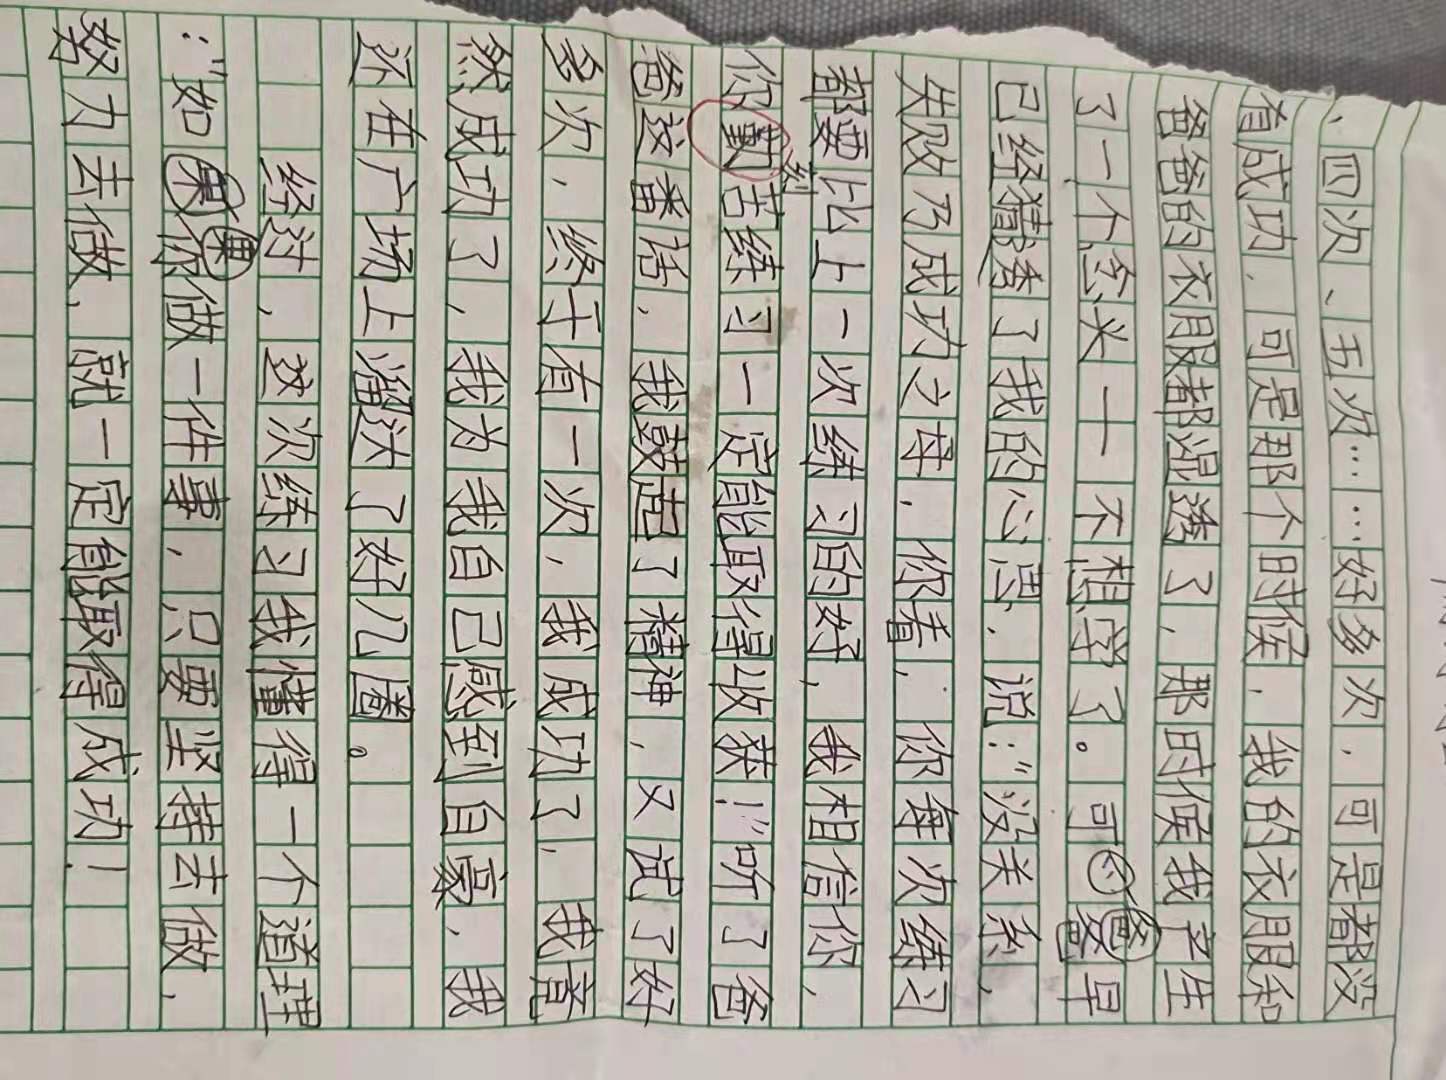 、四次、五次……好多次，可是都没
有成功，可是那个时候，我的衣服和
爸爸的衣服都湿透了，那时候我产生
了一个念头——不想学了。可爸爸早
已经猜透了我的心思，说：“没关系，
失败乃成功之母，你看，你每次练习
都要比上一次练习的好，我相信你，
你刻苦练习一定能取得收获！”听了爸
爸这番话，我鼓起了精神，又试了好
多次，终于有一次，我成功了，我竟
然成功了，我为我自己感到自豪，我
还在广场上溜达了好几圈。
经过，这次练习我懂得一个道理
：“如果你做一件事，只要坚持去做，
努力去做，就一定能取得成功！